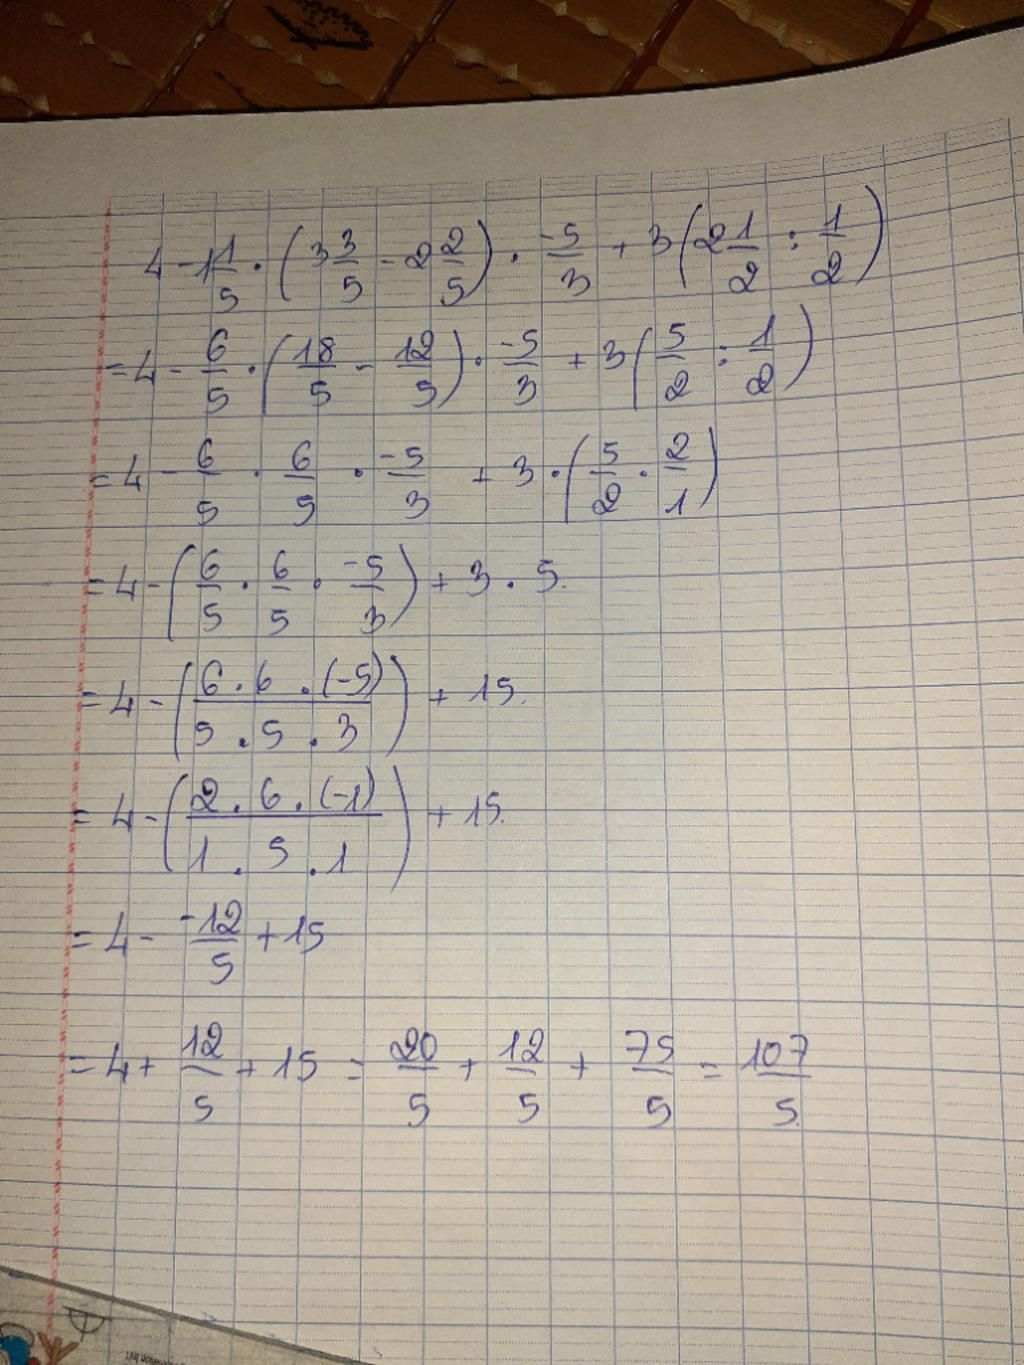 4 - 1 1/5 . (3 3/5 - 2 2/5) . -5/3 + 3(2 1/2 : 1/2)
= 4 - 6/5 . (18/5 - 12/5) . -5/3 + 3(5/2 : 1/2)
= 4 - 6/5 . 6/5 . -5/3 + 3 . (5/2 . 2/1)
= 4 - (6/5 . 6/5 . -5/3) + 3 . 5.
= 4 - (6 . 6 . (-5) / 5 . 5 . 3) + 15.
= 4 - (2 . 6 . (-1) / 1 . 5 . 1) + 15.
= 4 - -12/5 + 15
= 4 + 12/5 + 15 = 20/5 + 12/5 + 75/5 = 107/5.